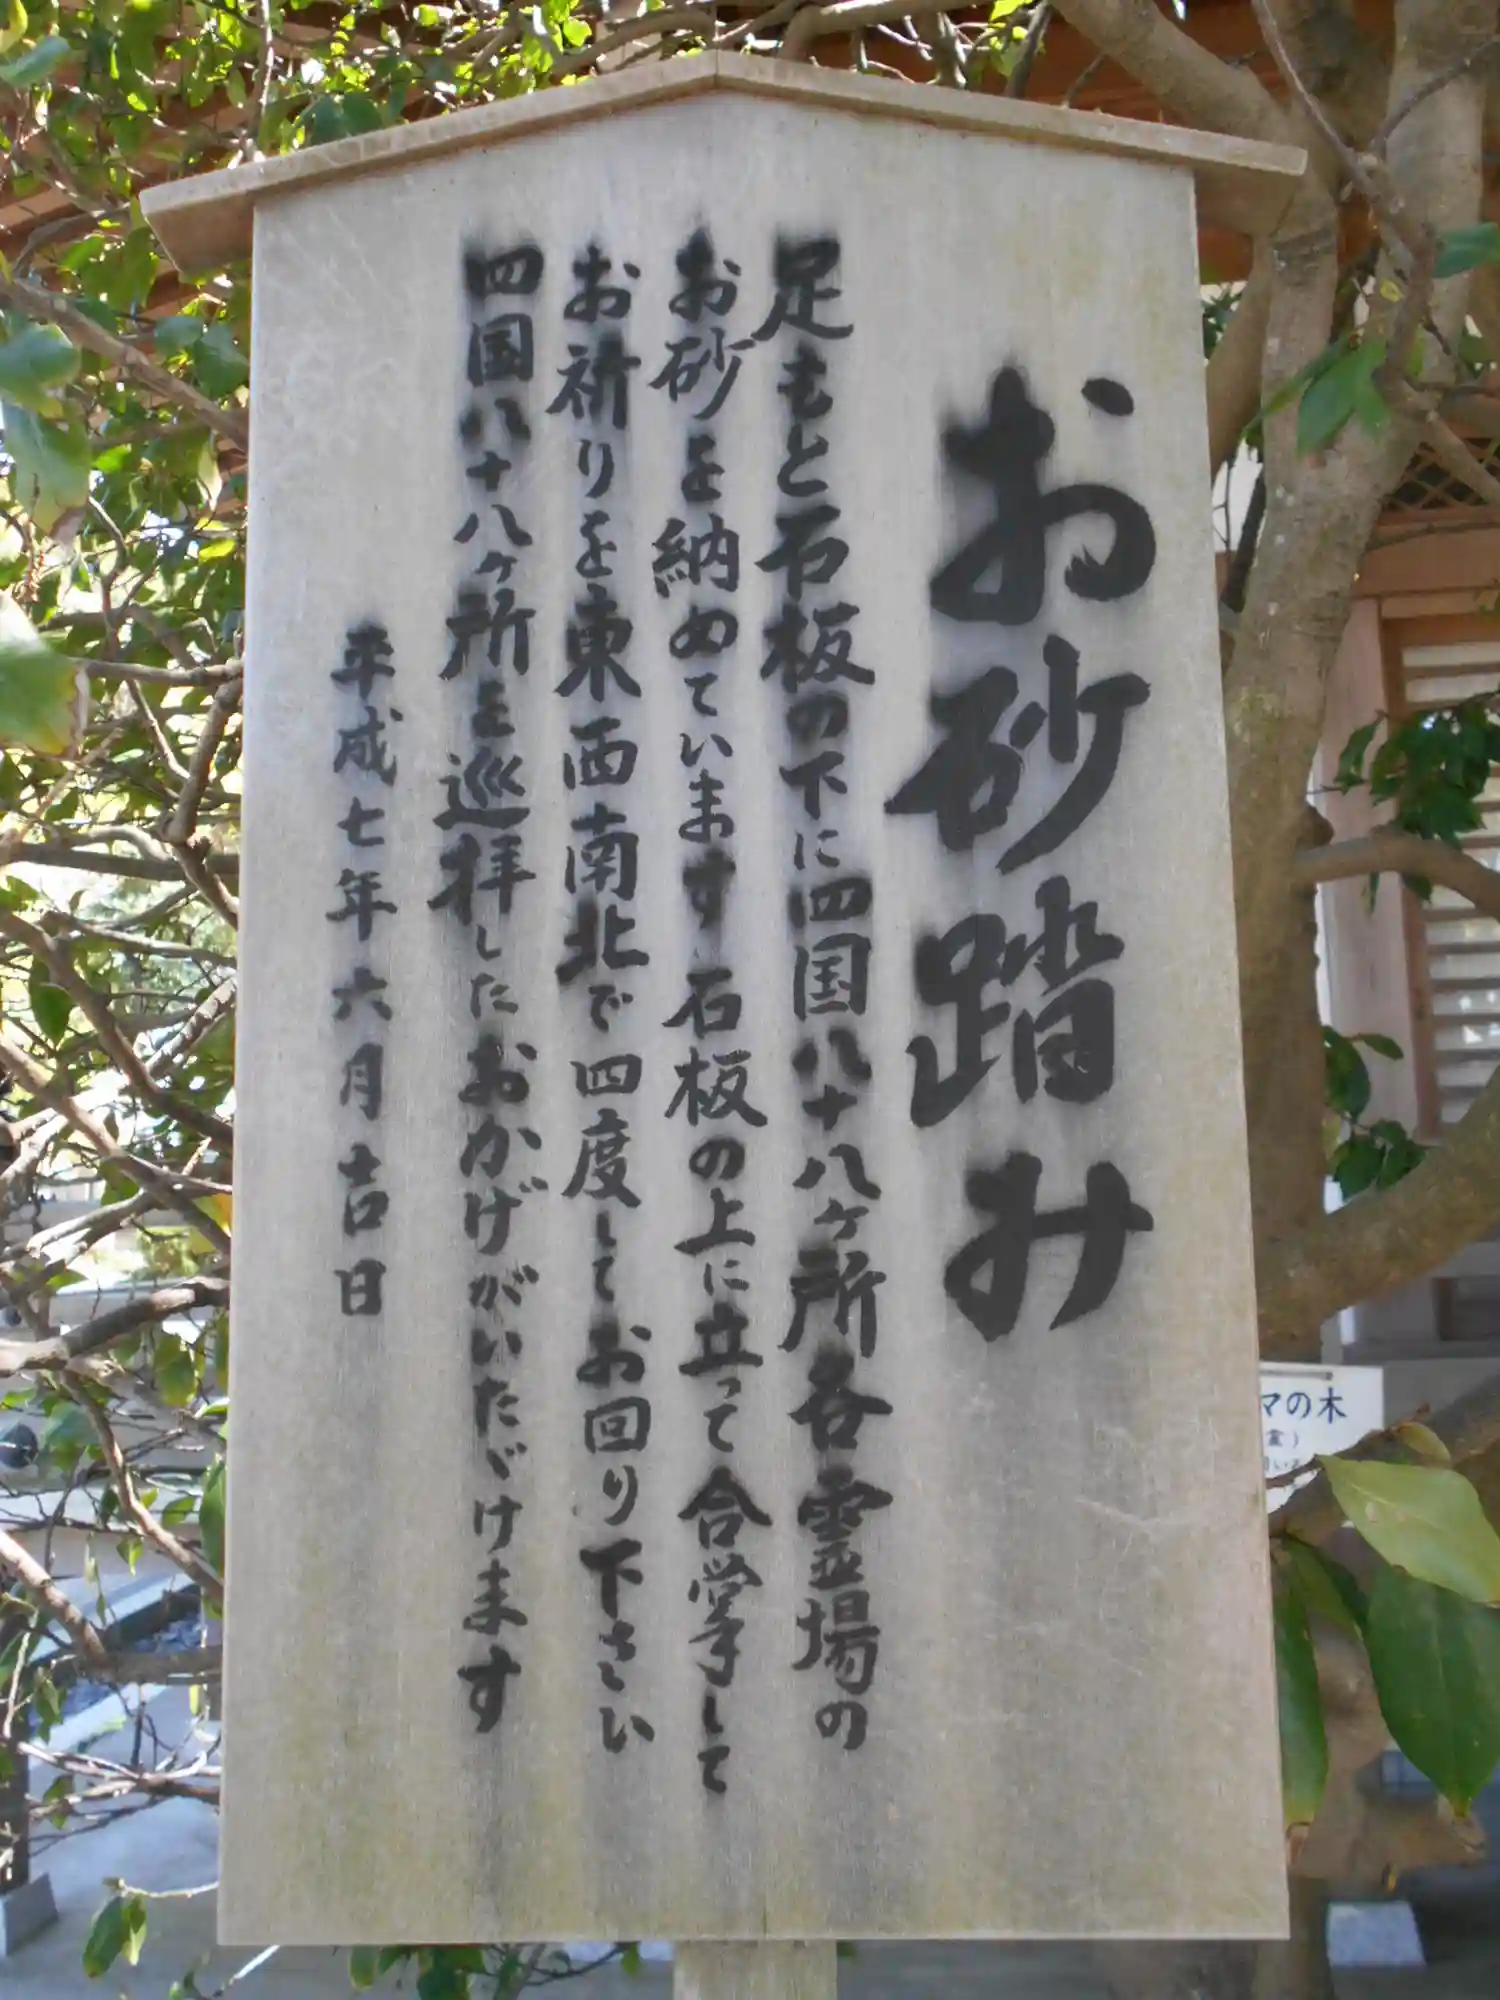 お砂踏み
足もと石板の下に四国八十八ヶ所各霊場の
お砂を納めています 石板の上に立って合掌して
お祈りを東西南北で四度してお回り下さい
四国八十八ヶ所を巡拝したおかげがいたゞけます
平成七年六月吉日
マの木